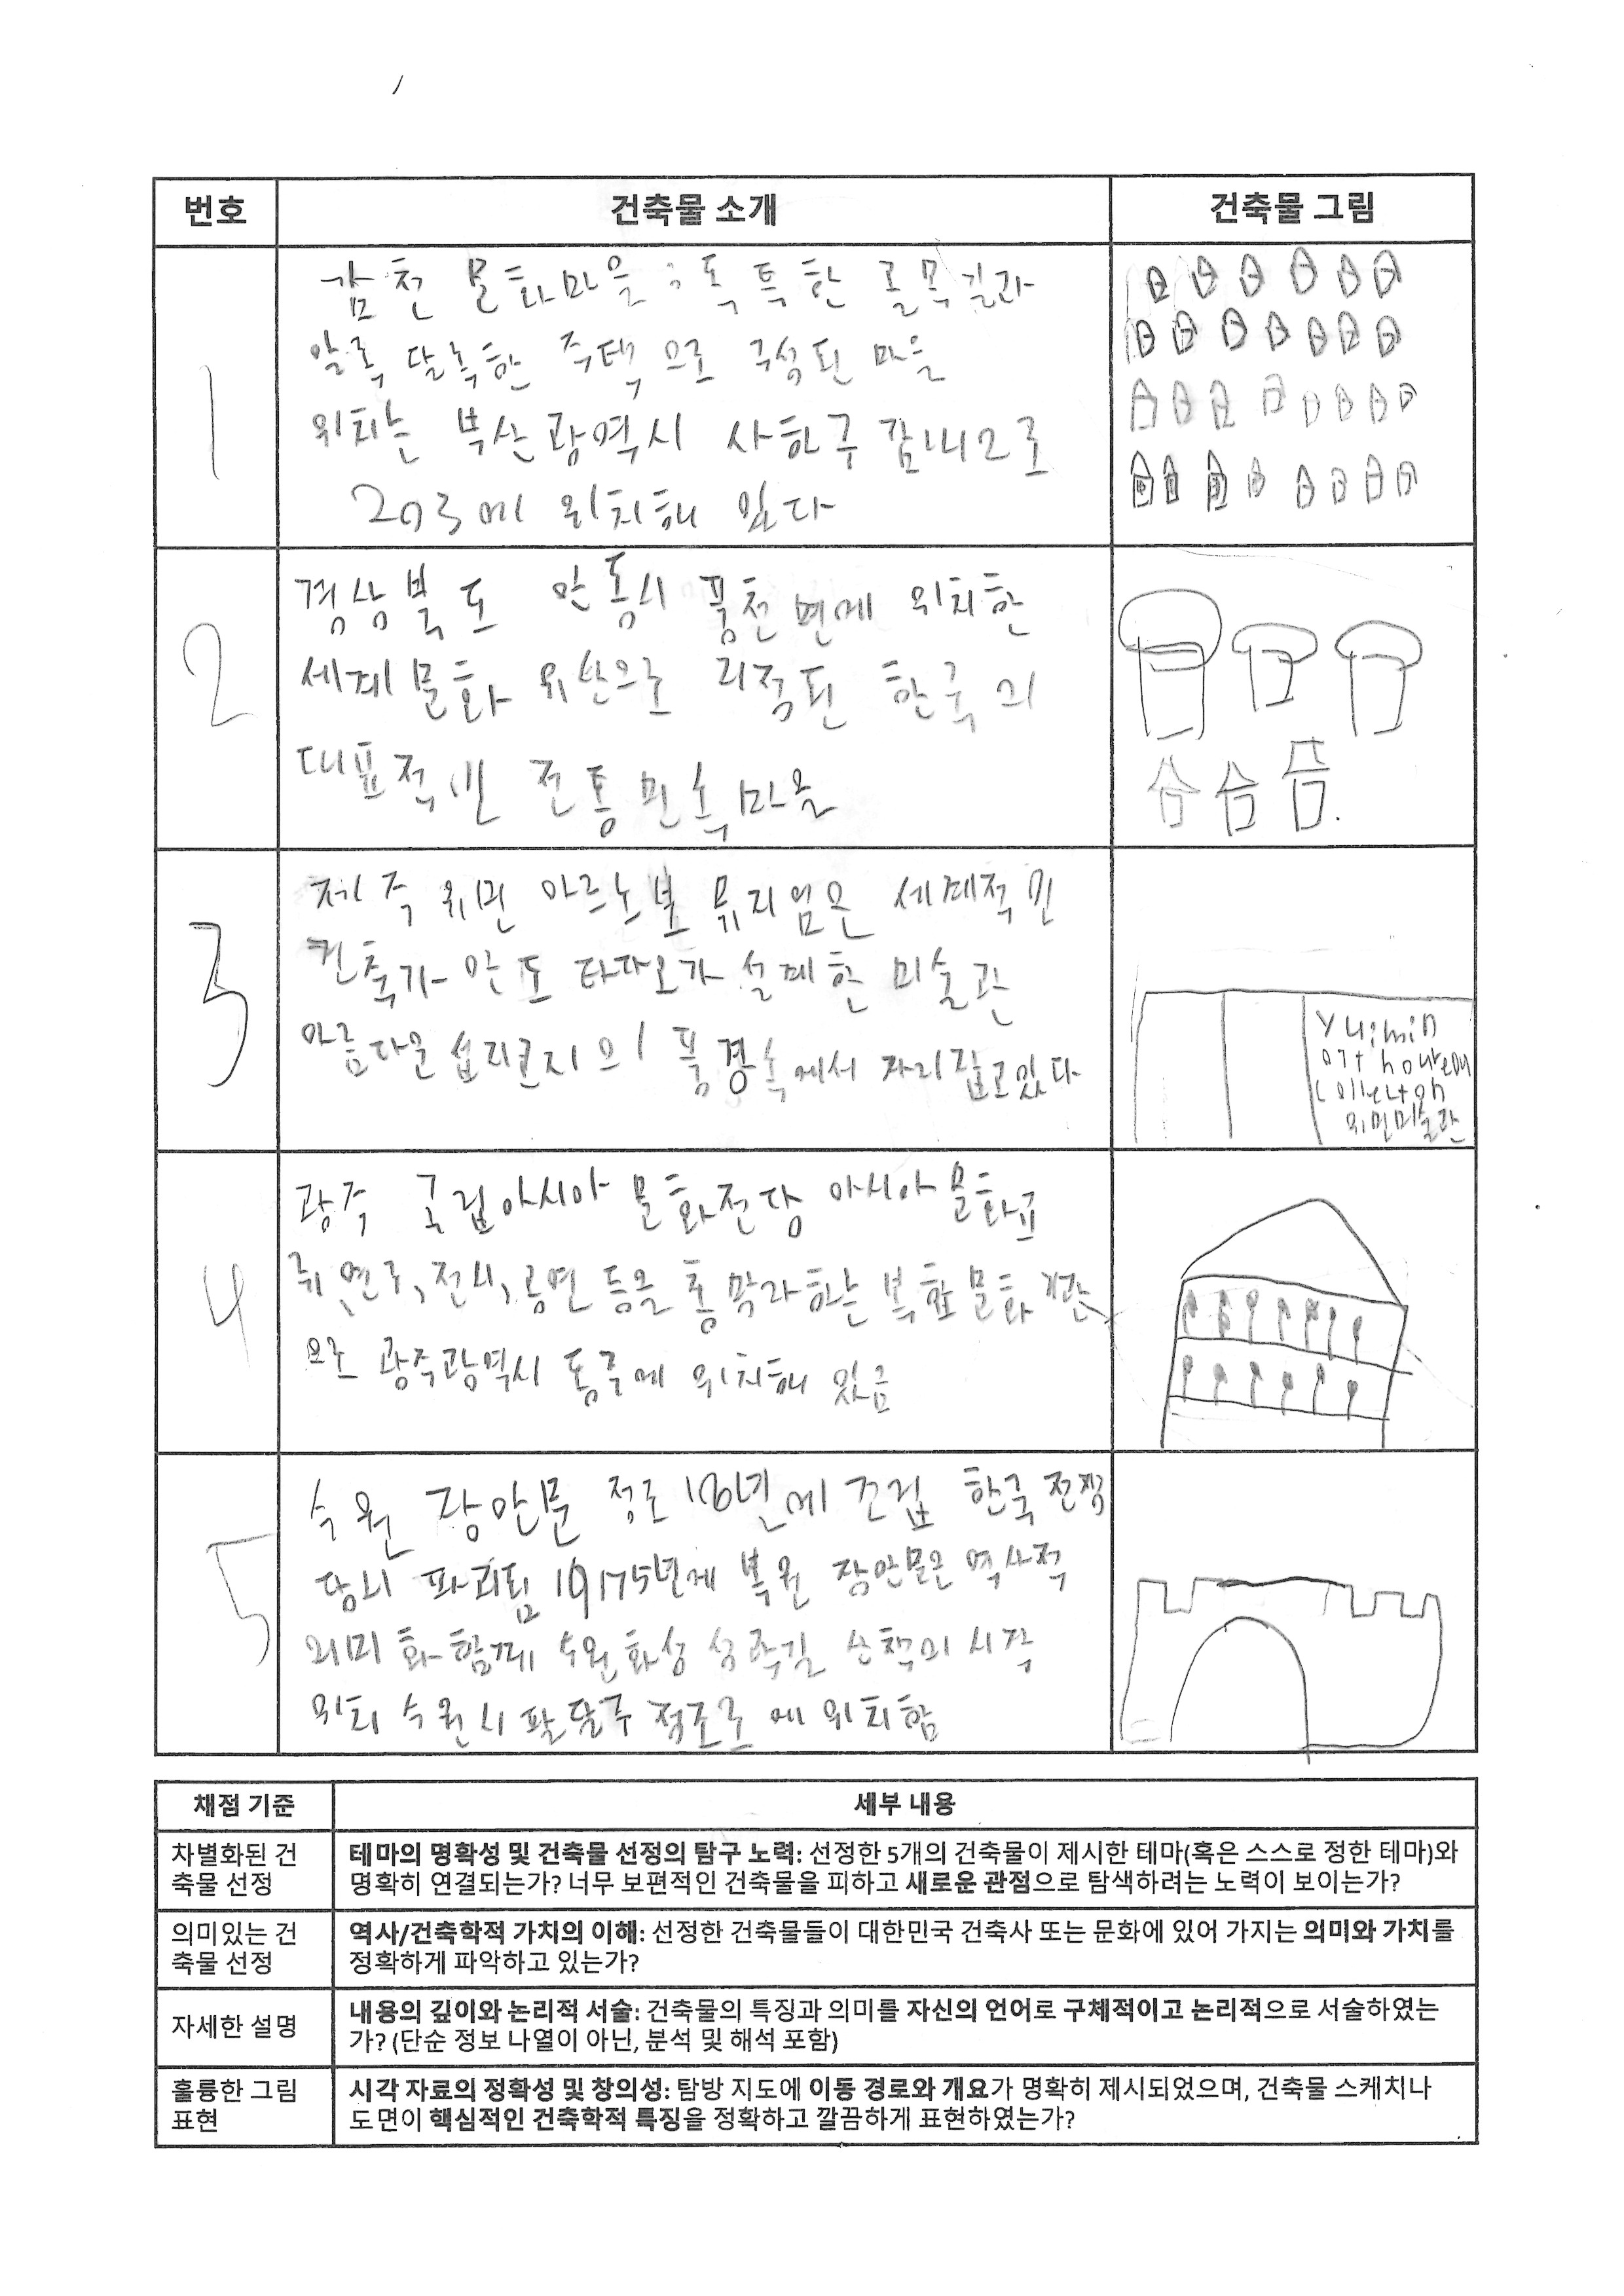 번호 건축물 소개 건축물 그림
1
감천 문화마을 : 독특한 골목길과
알록달록한 주택으로 구성된 마을
위치는 부산광역시 사하구 감내2로
203에 위치해 있다
2
경상북도 안동시 풍천면에 위치한
세계문화 유산으로 지정된 한국의
대표적인 전통민속마을
3
제주 유민 아르누보 뮤지엄은 세계적인
건축가 안도 타다오가 설계한 미술관
아름다운 섭지코지의 풍경속에서 자리잡고있다
유민미술관
4
광주 국립아시아 문화전당 아시아문화교
류, 연구, 전시, 공연 등을 하는 복합문화 기관
으로 광주광역시 동구에 위치해 있음
5
수원 장안문 정조 18년에 건립 한국전쟁
당시 파괴됨 1975년에 복원 장안문은 역사적
의미화 함께 수원화성 성곽길 산책의 시작
위치 수원시 팔달구 정조로에 위치함
채점 기준 세부 내용
차별화된 건 테마의 명확성 및 건축물 선정의 탐구 노력: 선정한 5개의 건축물이 제시한 테마(혹은 스스로 정한 테마)와
축물 선정 명확히 연결되는가? 너무 보편적인 건축물을 피하고 새로운 관점으로 탐색하려는 노력이 보이는가?
의미있는 건 역사/건축학적 가치의 이해: 선정한 건축물들이 대한민국 건축사 또는 문화에 있어 가지는 의미와 가치를
축물 선정 정확하게 파악하고 있는가?
자세한 설명 내용의 깊이와 논리적 서술: 건축물의 특징과 의미를 자신의 언어로 구체적이고 논리적으로 서술하였는
가? (단순 정보 나열이 아닌, 분석 및 해석 포함)
훌륭한 그림 시각 자료의 정확성 및 창의성: 탐방 지도에 이동 경로와 개요가 명확히 제시되었으며, 건축물 스케치나
표현 도면이 핵심적인 건축학적 특징을 정확하고 깔끔하게 표현하였는가?